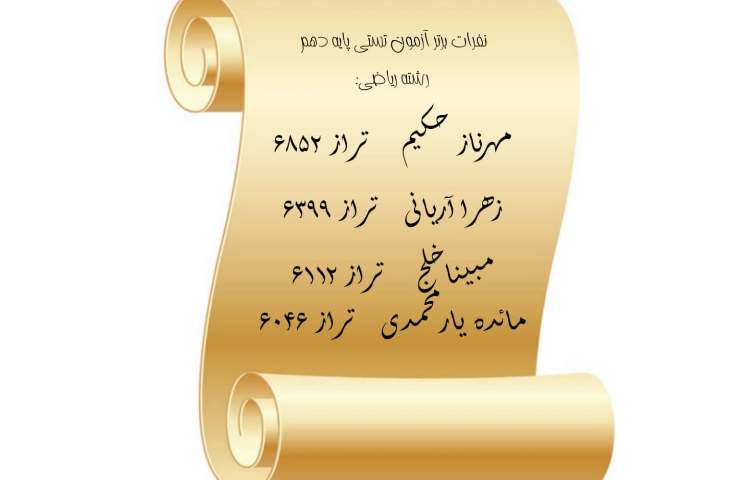 نفرات برتر آزمون تستی پایه دهم
رشته ریاضی:
مهرناز حکیم تراز ۶۸۵۲
زهرا آریانی تراز ۶۳۹۹
مبینا خلج تراز ۶۱۱۲
مائده یارمحمدی تراز ۶۰۴۶